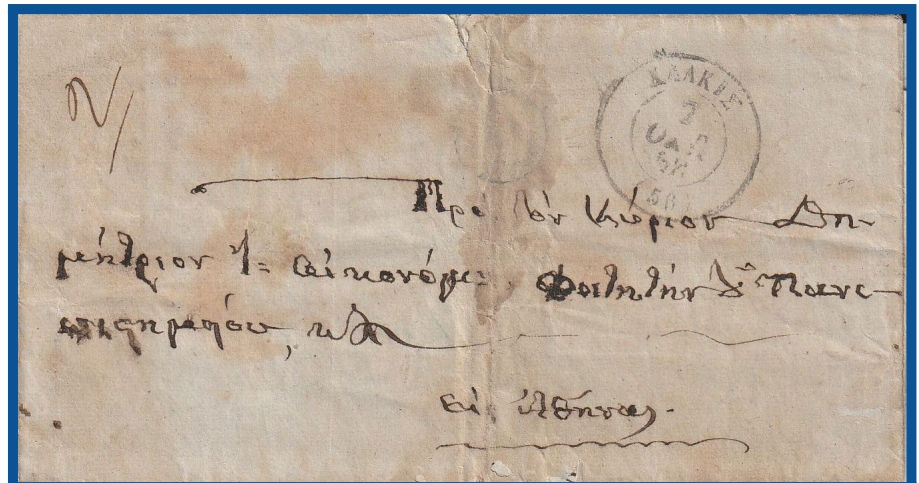 ΧΑΛΚΙΣ
7
56
Πρὸς τὸν Κύριον Δη-
μήτριον Οἰκονόμ: Φοιτητὴν τοῦ Πανε-
πιστημείου, κτλ
εἰς Ἀθήνας.